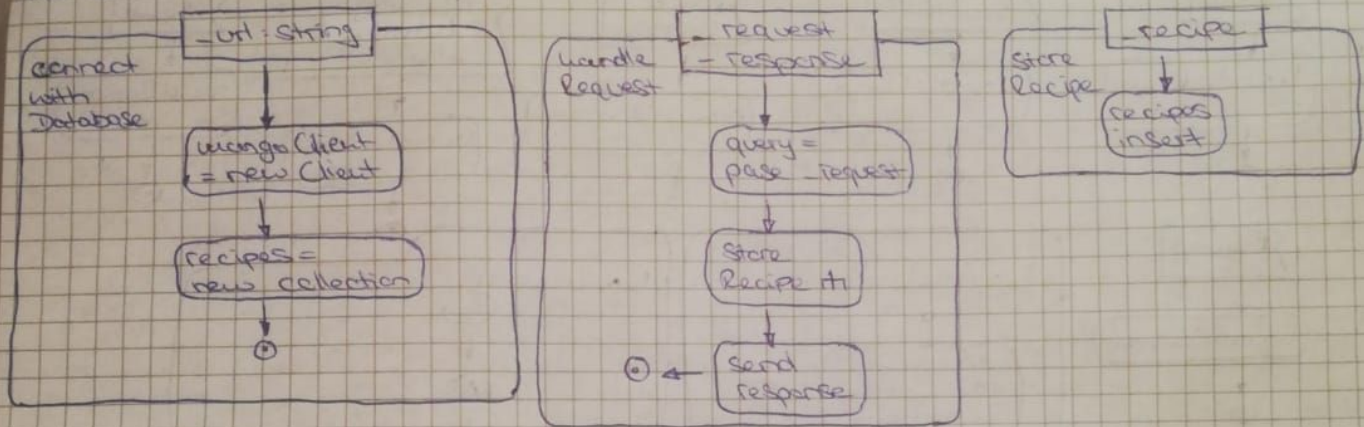 _url: string
connect
with
Database
mongoClient
= new Client
recipes =
new collection
_request
_response
handle
Request
query =
pase _request
Store
Recipe
send
response
_recipe
Store
Recipe
recipes
insert